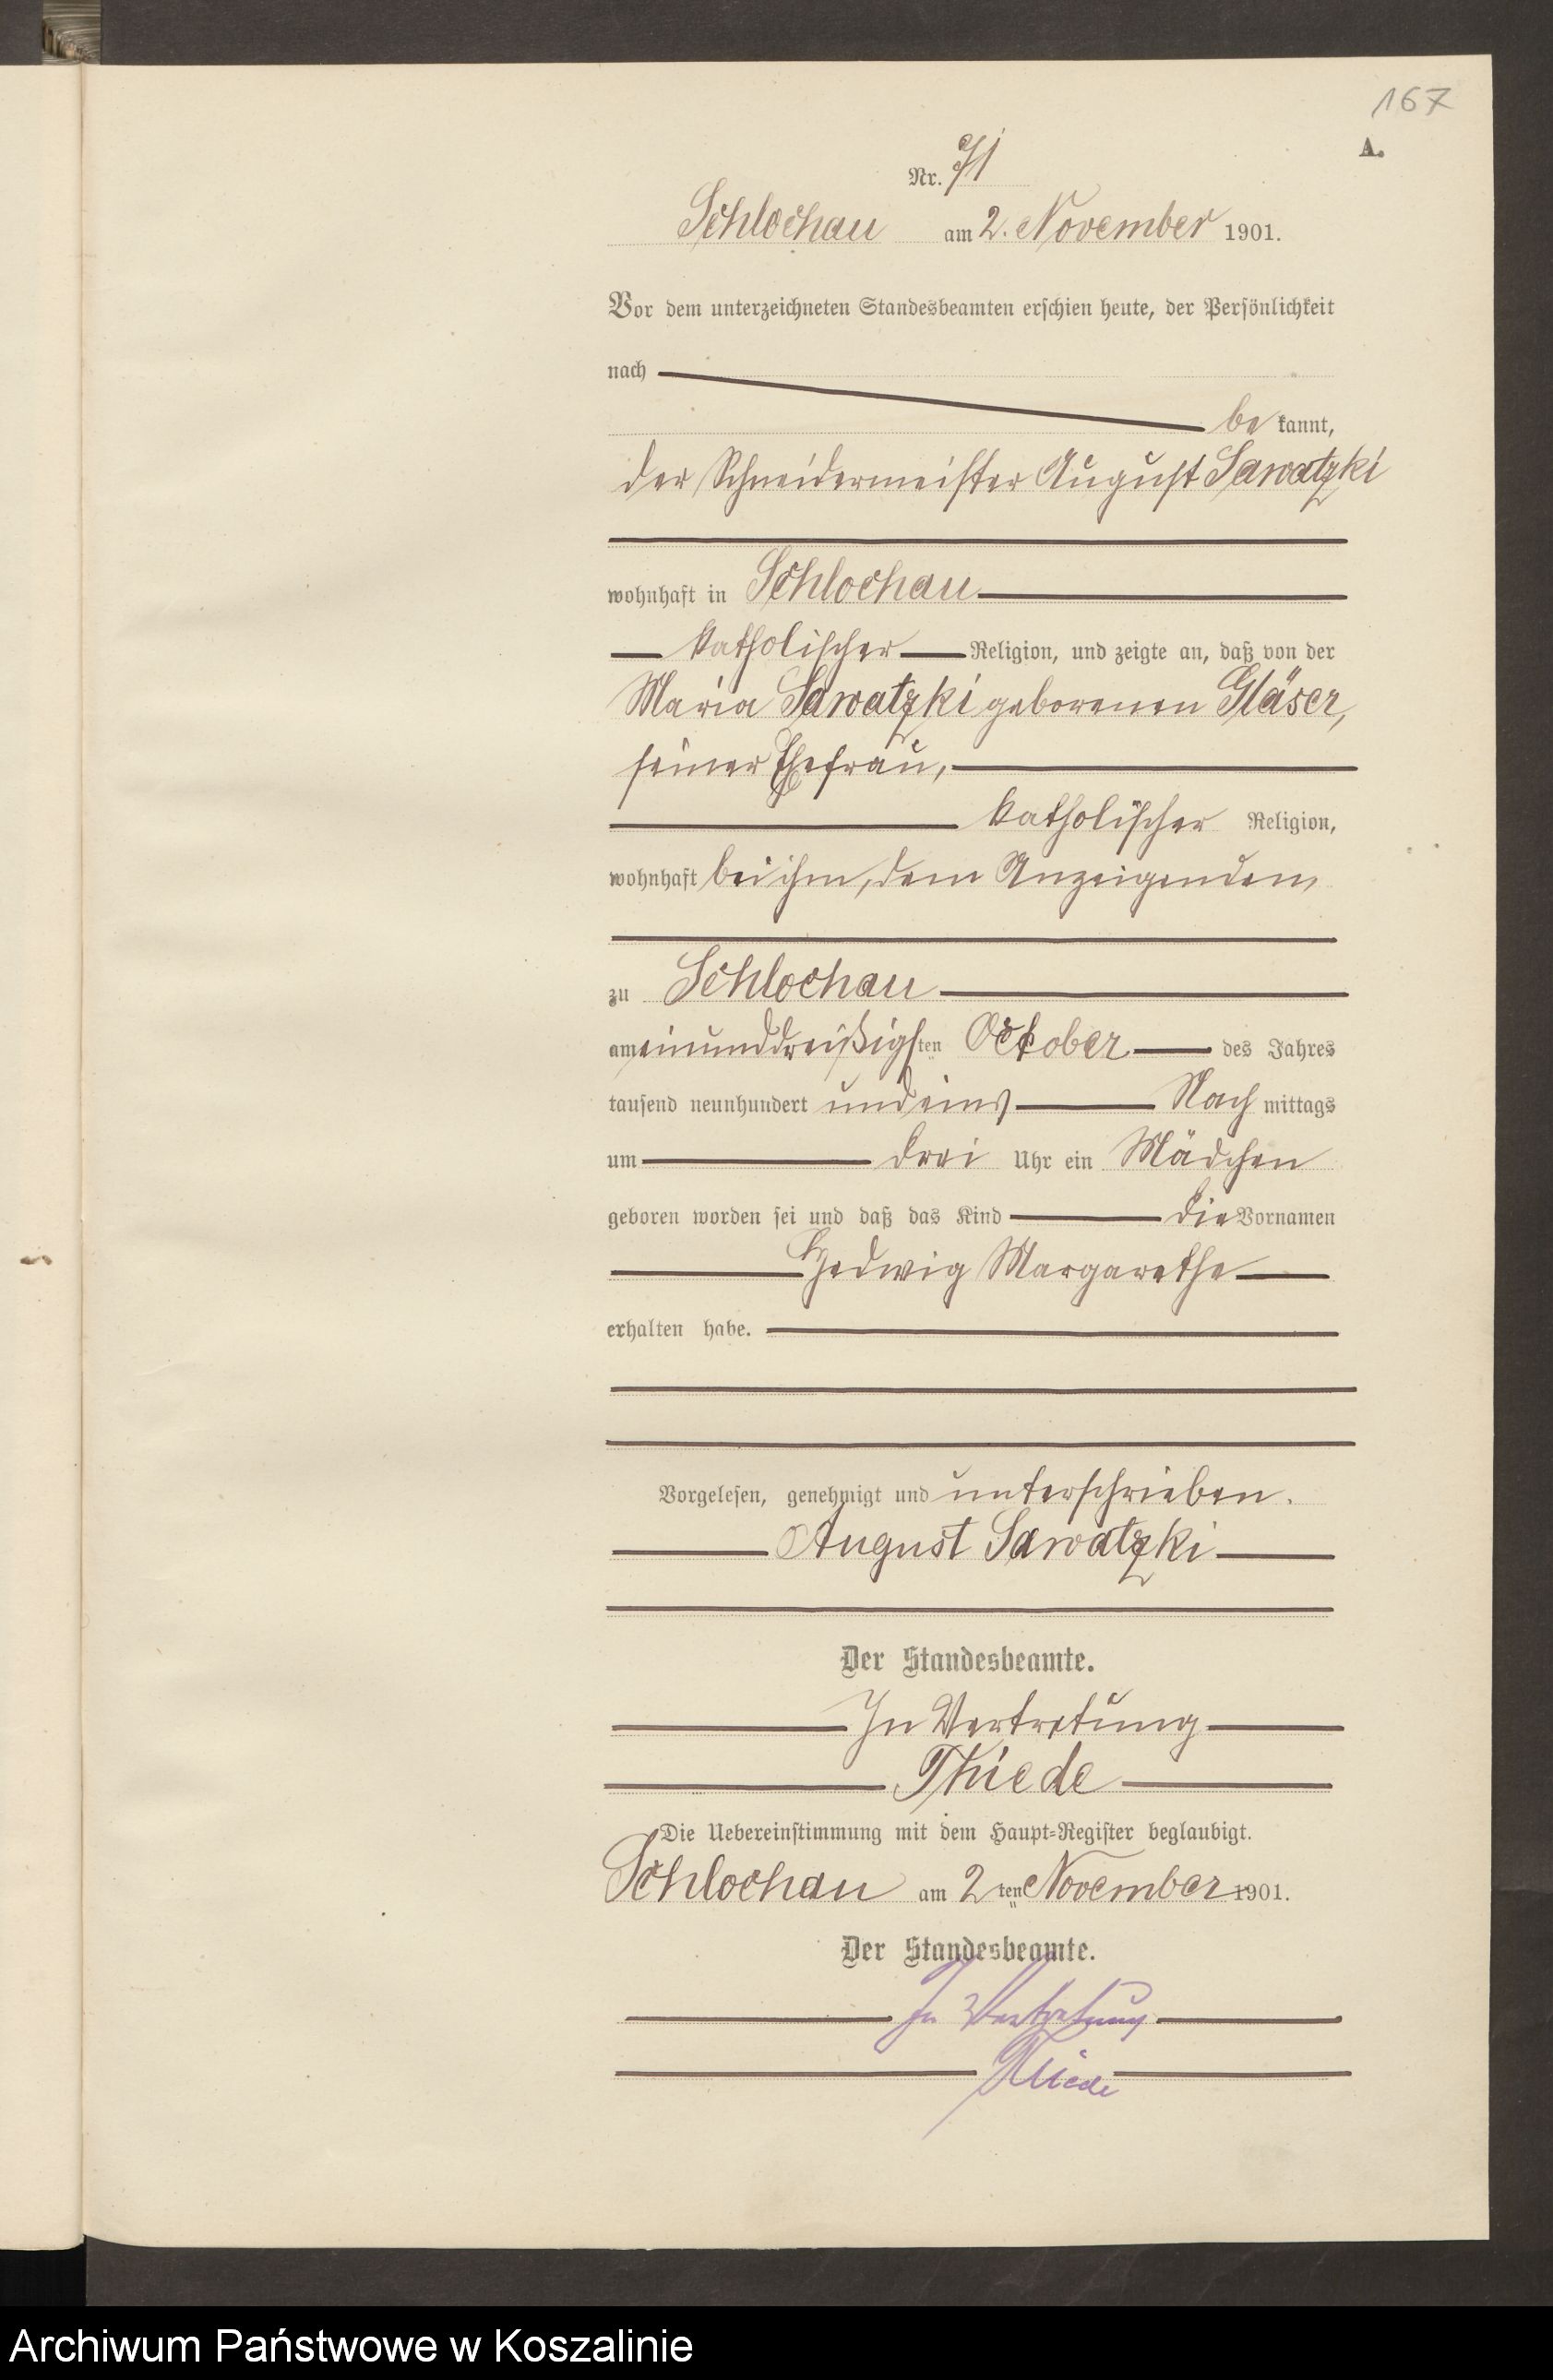 167
A.
Nr. 71
Schlochau am 2. November 1901.
Vor dem unterzeichneten Standesbeamten erschien heute, der Persönlichkeit
nach
be kannt,
der Schneidermeister August Sawatzki
wohnhaft in Schlochau
katholischer Religion, und zeigte an, daß von der
Maria Sawatzki geborenen Gläser,
seiner Ehefrau,
katholischer Religion,
wohnhaft bei ihm, dem Anzeigenden,
zu Schlochau
am einunddreißigsten October des Jahres
tausend neunhundert und eins Nach mittags
um drei Uhr ein Mädchen
geboren worden sei und daß das Kind die Vornamen
Hedwig Margarethe
erhalten habe.
Vorgelesen, genehmigt und unterschrieben.
August Sawatzki
Der Standesbeamte.
In Vertretung
Thiede
Die Uebereinstimmung mit dem Haupt-Register beglaubigt.
Schlochau am 2 ten November 1901.
Der Standesbeamte.
In Vertretung
Thiede
Archiwum Państwowe w Koszalinie